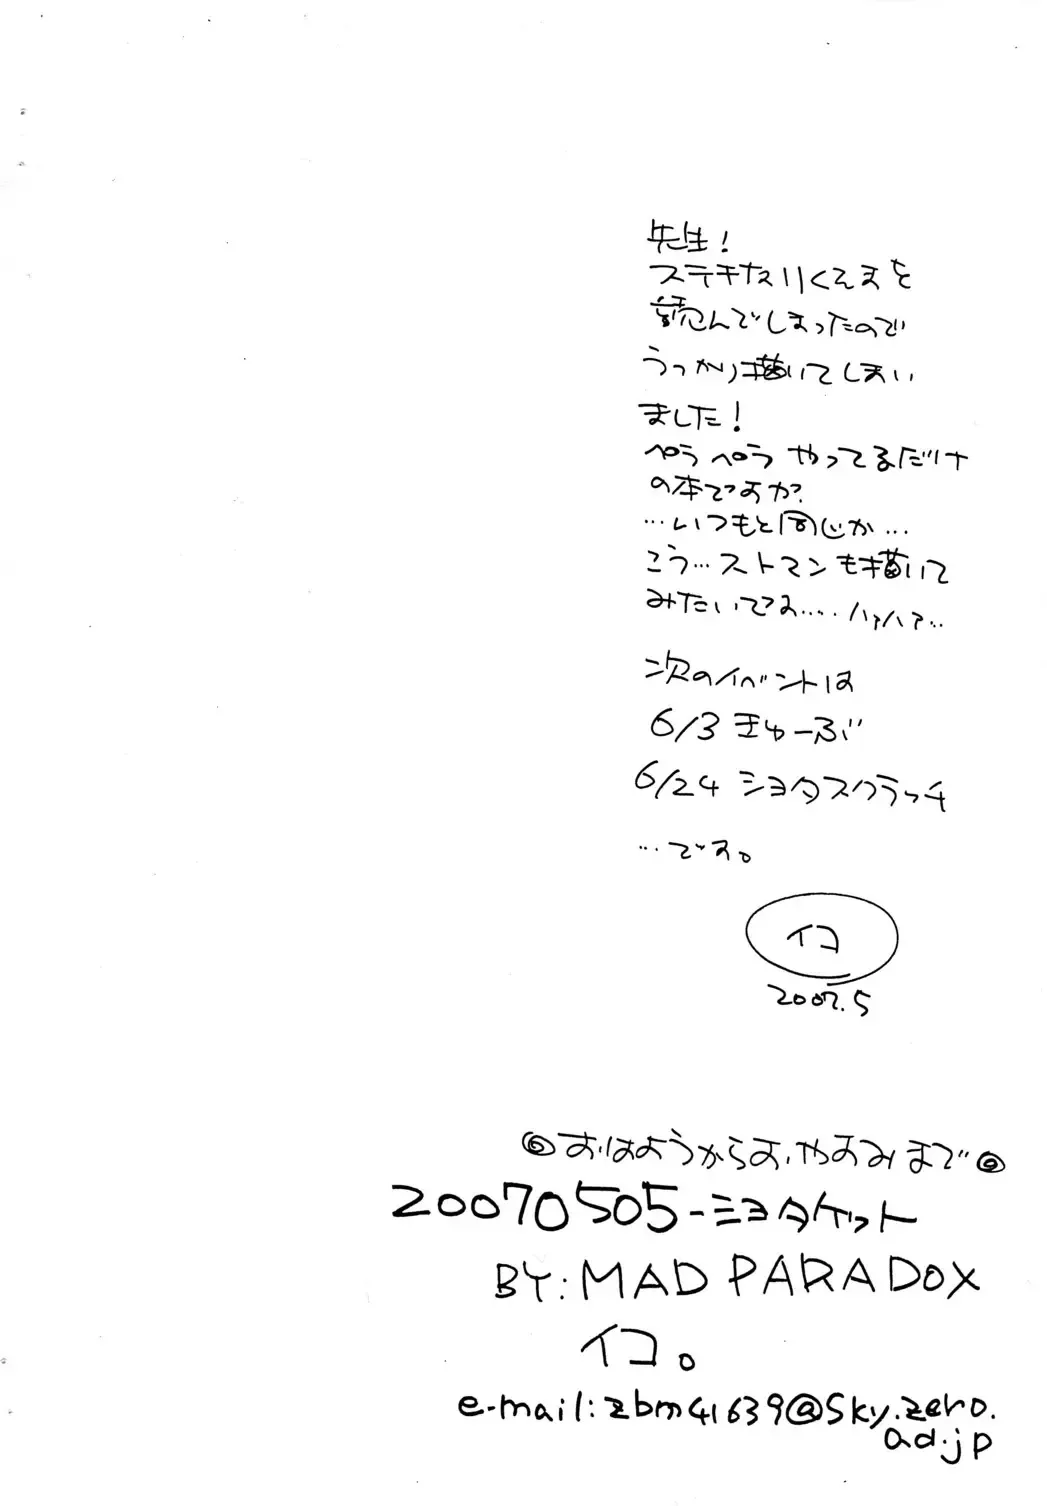 先生!
ステキなりくえすとを
読んでしまったので
うっかり描いてしまい
ました!
ペラペラやってるだけ
の本ですが?
…いつもと同じか…
こう…ストマンも描いて
みたいです…..ハァハァ…
次のイベントは
6/3 きゅーぶ
6/24 ショタスクラッチ
…です。
イコ
2007.5
◎おはようからおやすみまで◎
20070505-ショタケット
BY:MAD PARADOX
イコ。
e-mail:zbm41639@sky.zero.
ad.jp